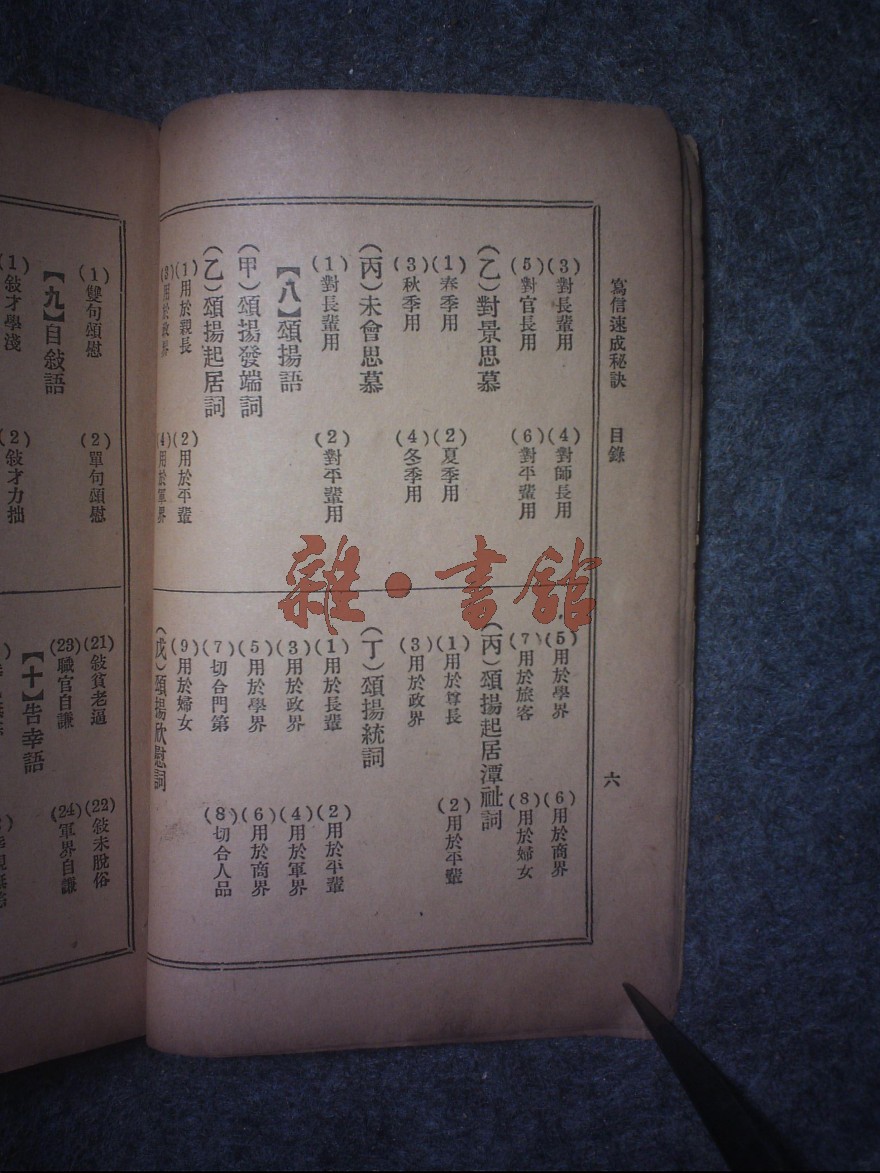 寫信速成秘訣 目錄 六
(3)對長輩用 (4)對師長用
(5)對官長用 (6)對平輩用
(乙)對景思慕
(1)春季用 (2)夏季用
(3)秋季用 (4)冬季用
(丙)未會思慕
(1)對長輩用 (2)對平輩用
【八】頌揚語
(甲)頌揚發端詞
(乙)頌揚起居詞
(1)用於親長 (2)用於平輩
(3)用於政界 (4)用於軍界
(5)用於學界 (6)用於商界
(7)用於旅客 (8)用於婦女
(丙)頌揚起居潭祉詞
(1)用於尊長 (2)用於平輩
(3)用於政界
(丁)頌揚統詞
(1)用於長輩 (2)用於平輩
(3)用於政界 (4)用於軍界
(5)用於學界 (6)用於商界
(7)切合門第 (8)切合人品
(9)用於婦女
(戊)頌揚欣慰詞
(1)雙句頌慰 (2)單句頌慰
【九】自敍語
(1)敍才學淺 (2)敍才力拙
(21)敍貧老逼 (22)敍未脫俗
(23)職官自謙 (24)軍界自謙
【十】告幸語
雜·書館